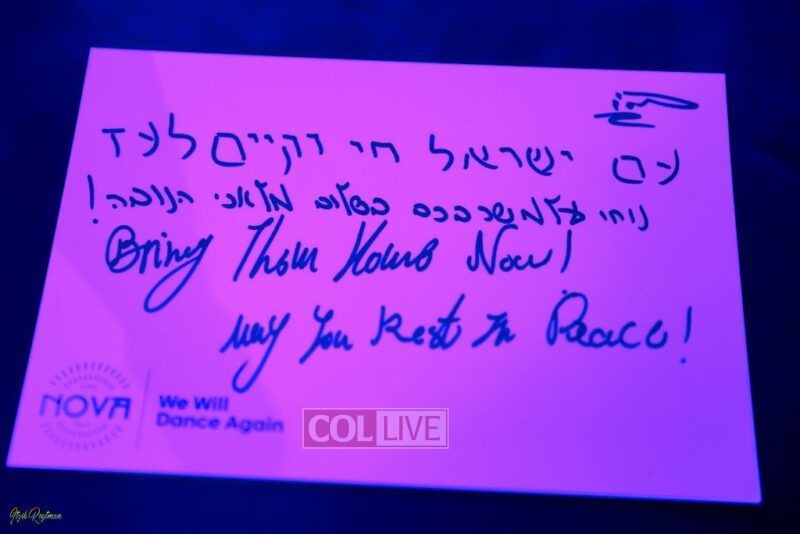 עם ישראל חי וקיים לעד
נוחו על משכבכם בשלום מלאכי הנובה!
Bring Them Home Now!
May You Rest In Peace!
NOVA
We Will
Dance Again
COL LIVE
Itzik Roytman